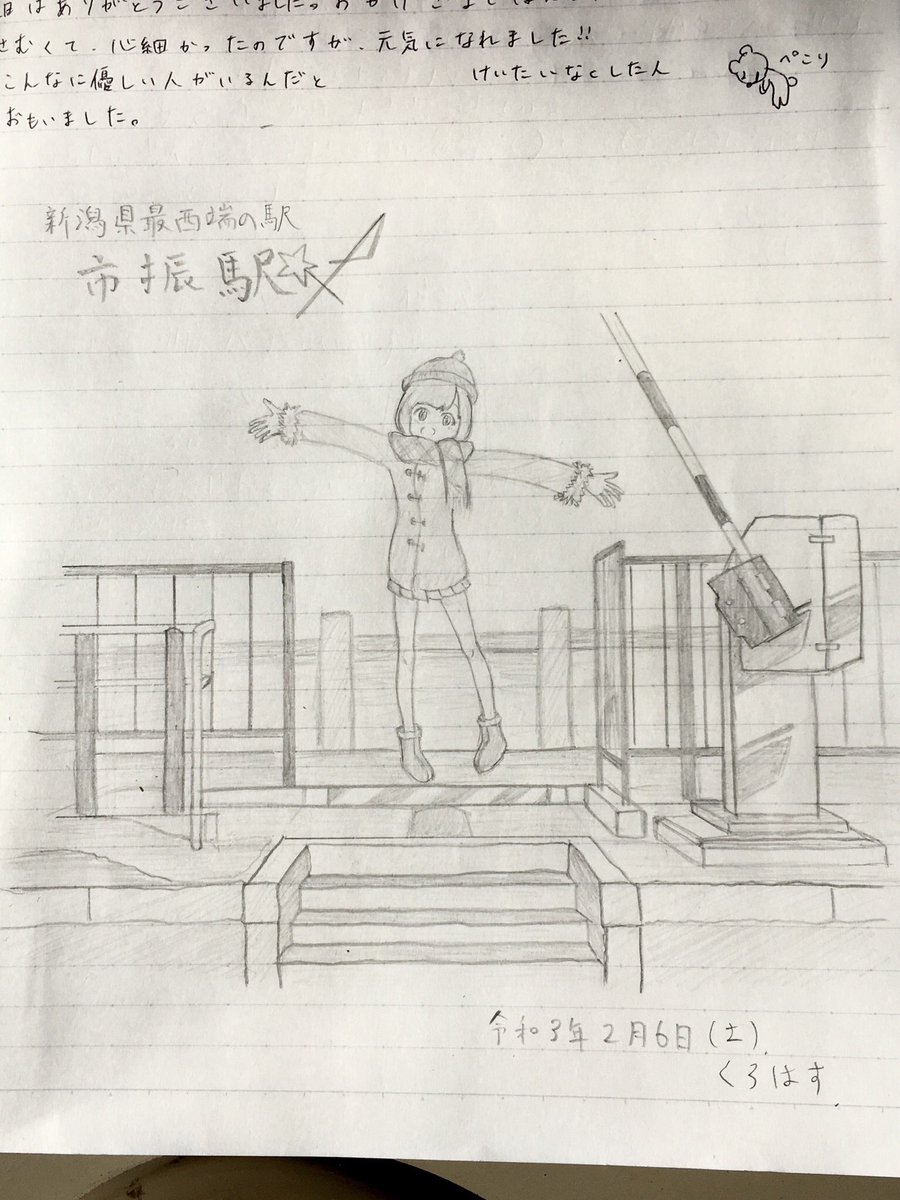 日はありがとうございました。おかげさまで
さむくて、心細かったのですが、元気になれました!!
こんなに優しい人がいるんだと
おもいました。
けいたいなくした人
ぺこり
新潟県最西端の駅
市振駅
令和3年2月6日(土)
くろはす